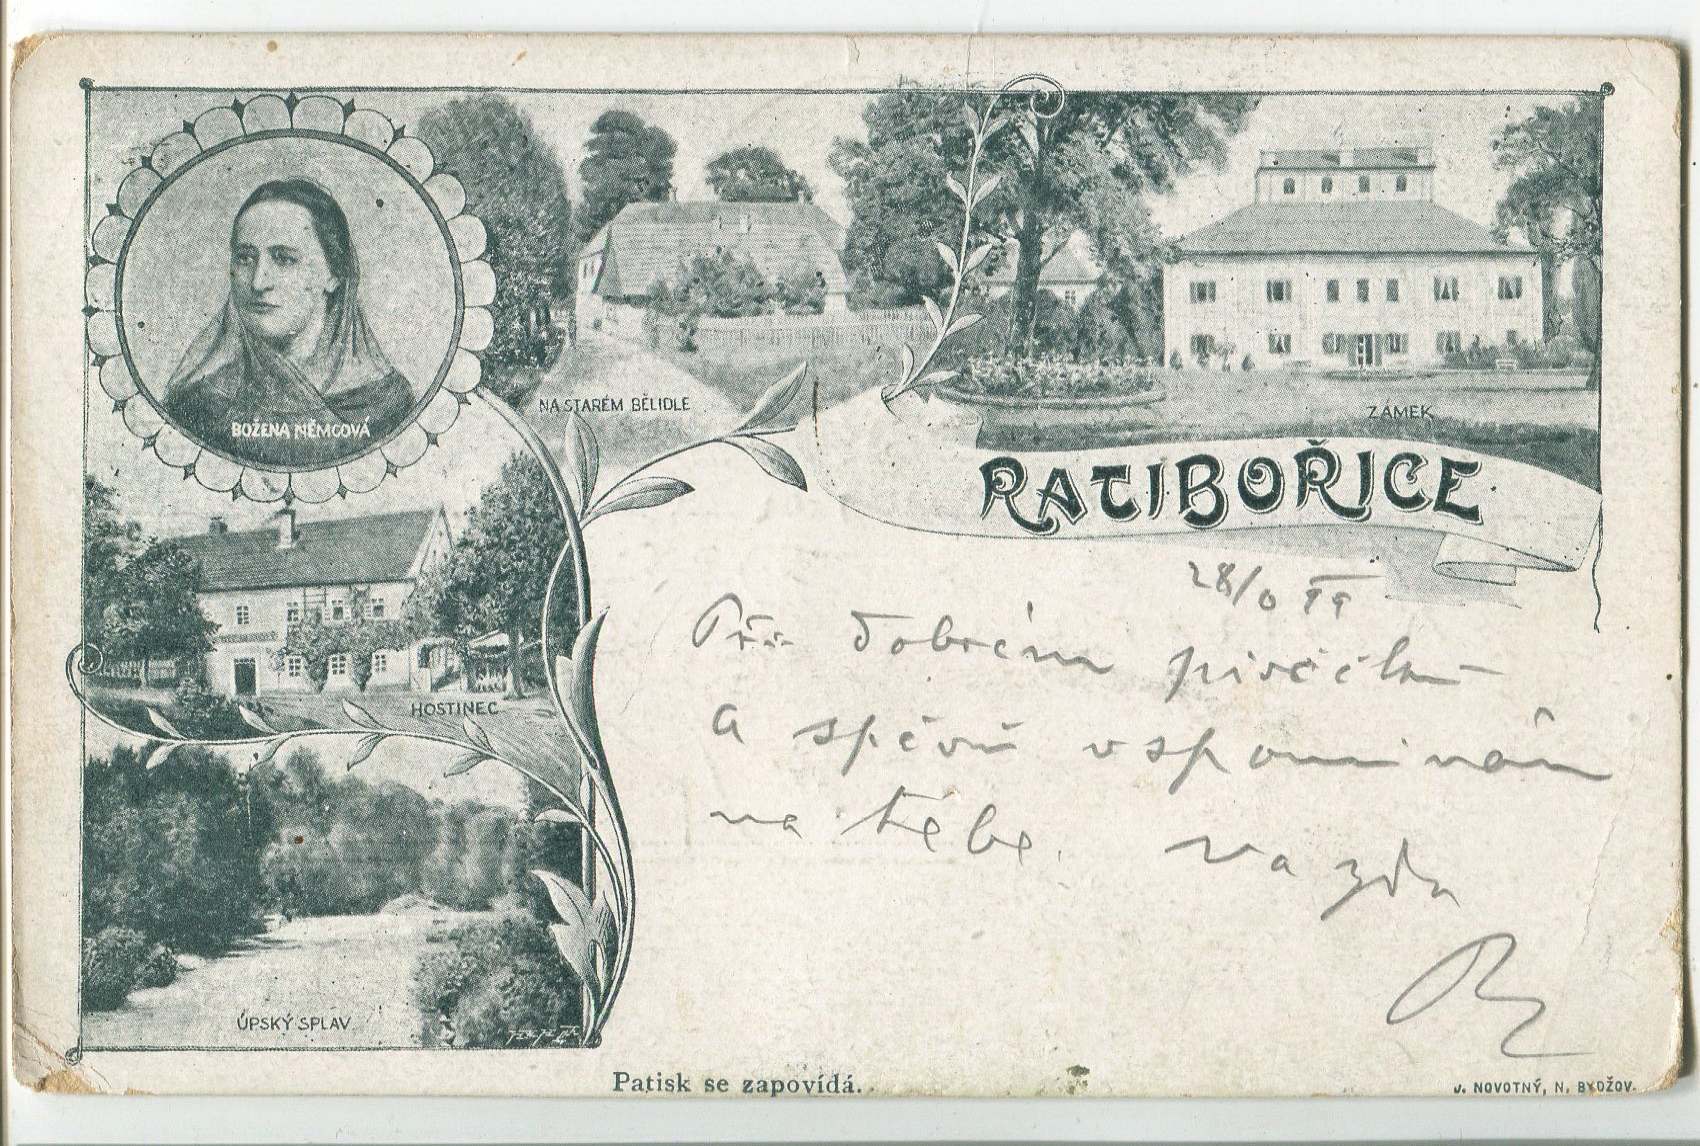 BOŽENA NĚMCOVÁ
NA STARÉM BĚLIDLE
ZÁMEK
RATIBOŘICE
HOSTINEC
ÚPSKÝ SPLAV
Při dobrém pivéčku
a zpěvu vzpomínám
na tebe. Na zda
Patisk se zapovídá.
J. NOVOTNÝ, N. BYDŽOV.